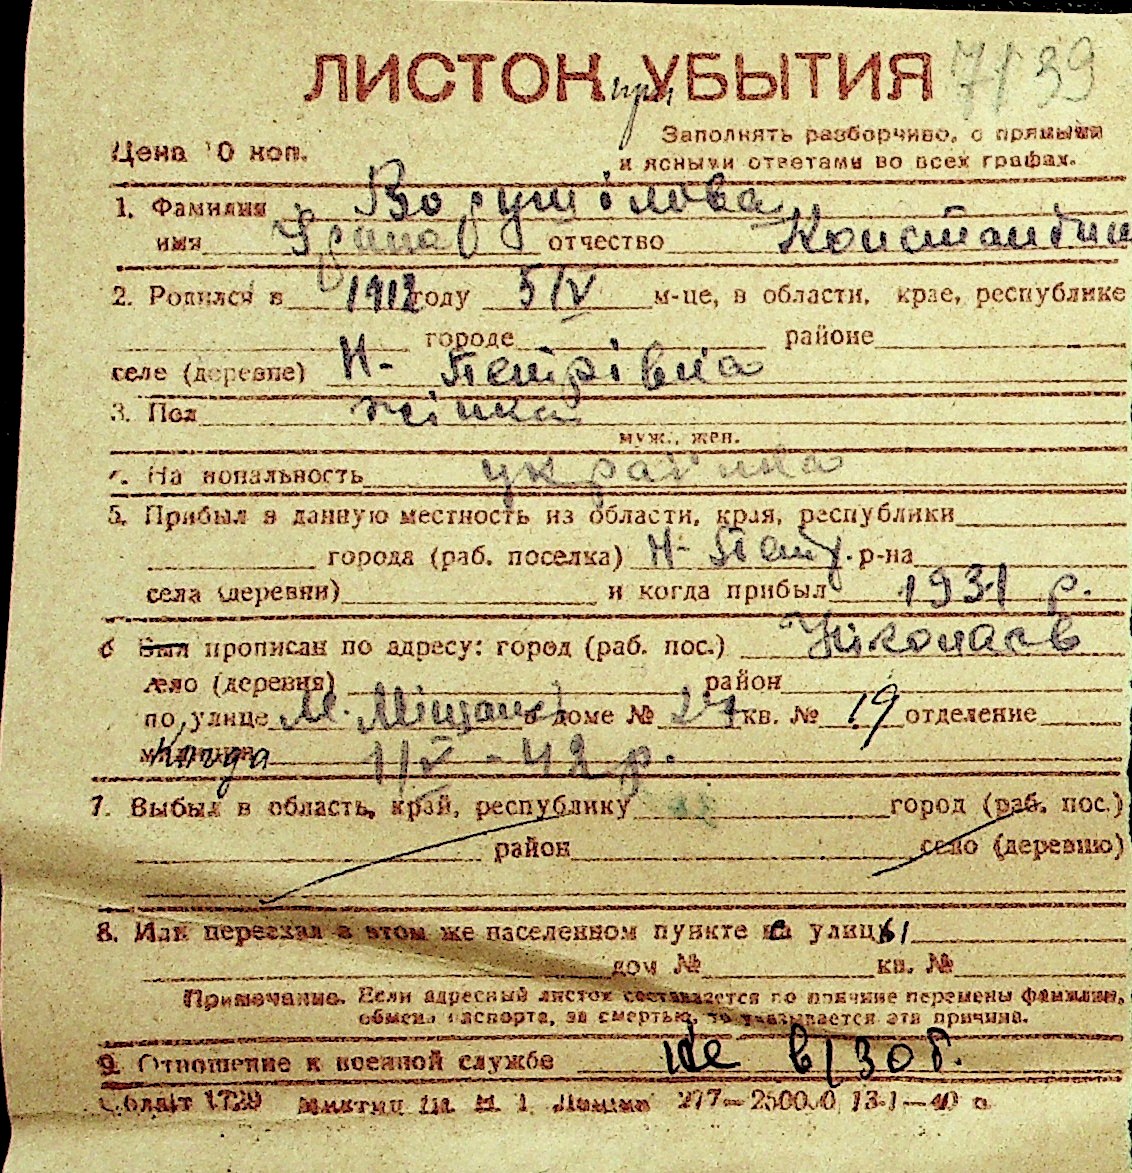 ЛИСТОК УБЫТИЯ 7/39
при
Цена 10 коп.
Заполнять разборчиво, с прямыми
и ясными ответами во всех графах.
1. Фамилия Ворушілова
имя отчество Константин
2. Родился в 1912 году 5/IV м-це, в области, крае, республике
городе районе
селе (деревне) Н-Петрівка
3. Пол жінка
муж., жен.
4. Национальность українка
5. Прибыл в данную местность из области, края, республики
города (раб. поселка) Н-Петр. р-на
села (деревни) и когда прибыл 1931 р.
6 Был прописан по адресу: город (раб. пос.) Николаєв
село (деревня) район
по улице М. Міщанск в доме № 27 кв. № 19 отделение
милиции Когда 1/V-42 р.
7. Выбыл в область, край, республику город (раб. пос.)
район село (деревню)
8. Или переехал в этом же населенном пункте с улицы
дом № кв. №
Примечание. Если адресный листок составляется по причине перемены фамилии,
обмена паспорта, за смертью, то указывается эта причина.
9. Отношение к военной службе не в/зоб.
Облліт 1729 277—250000 13-1—40 г.